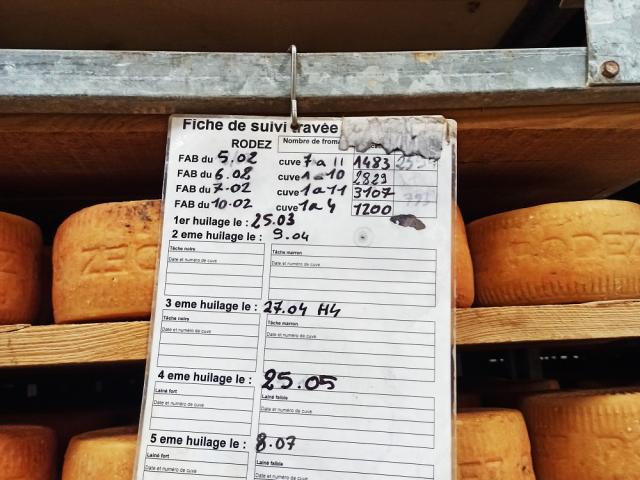 Fiche de suivi travée
RODEZ Nombre de from
FAB du 5.02 cuve 7 a 11 1483
FAB du 6.02 cuve 1 a 10 2829
FAB du 7.02 cuve 1 a 11 3107
FAB du 10.02 cuve 1 a 4 1200
1er huilage le : 25.03
2 eme huilage le : 9.04
Tâche noire Tâche marron
Date et numéro de cuve Date et numéro de cuve
3 eme huilage le : 27.04 H4
Tâche noire Tâche marron
Date et numéro de cuve Date et numéro de cuve
4 eme huilage le : 25.05
Lainé fort Lainé faible
Date et numéro de cuve Date et numéro de cuve
5 eme huilage le : 8.07
Lainé fort Lainé faible
Date et numéro de cuve Date et numéro de cuve